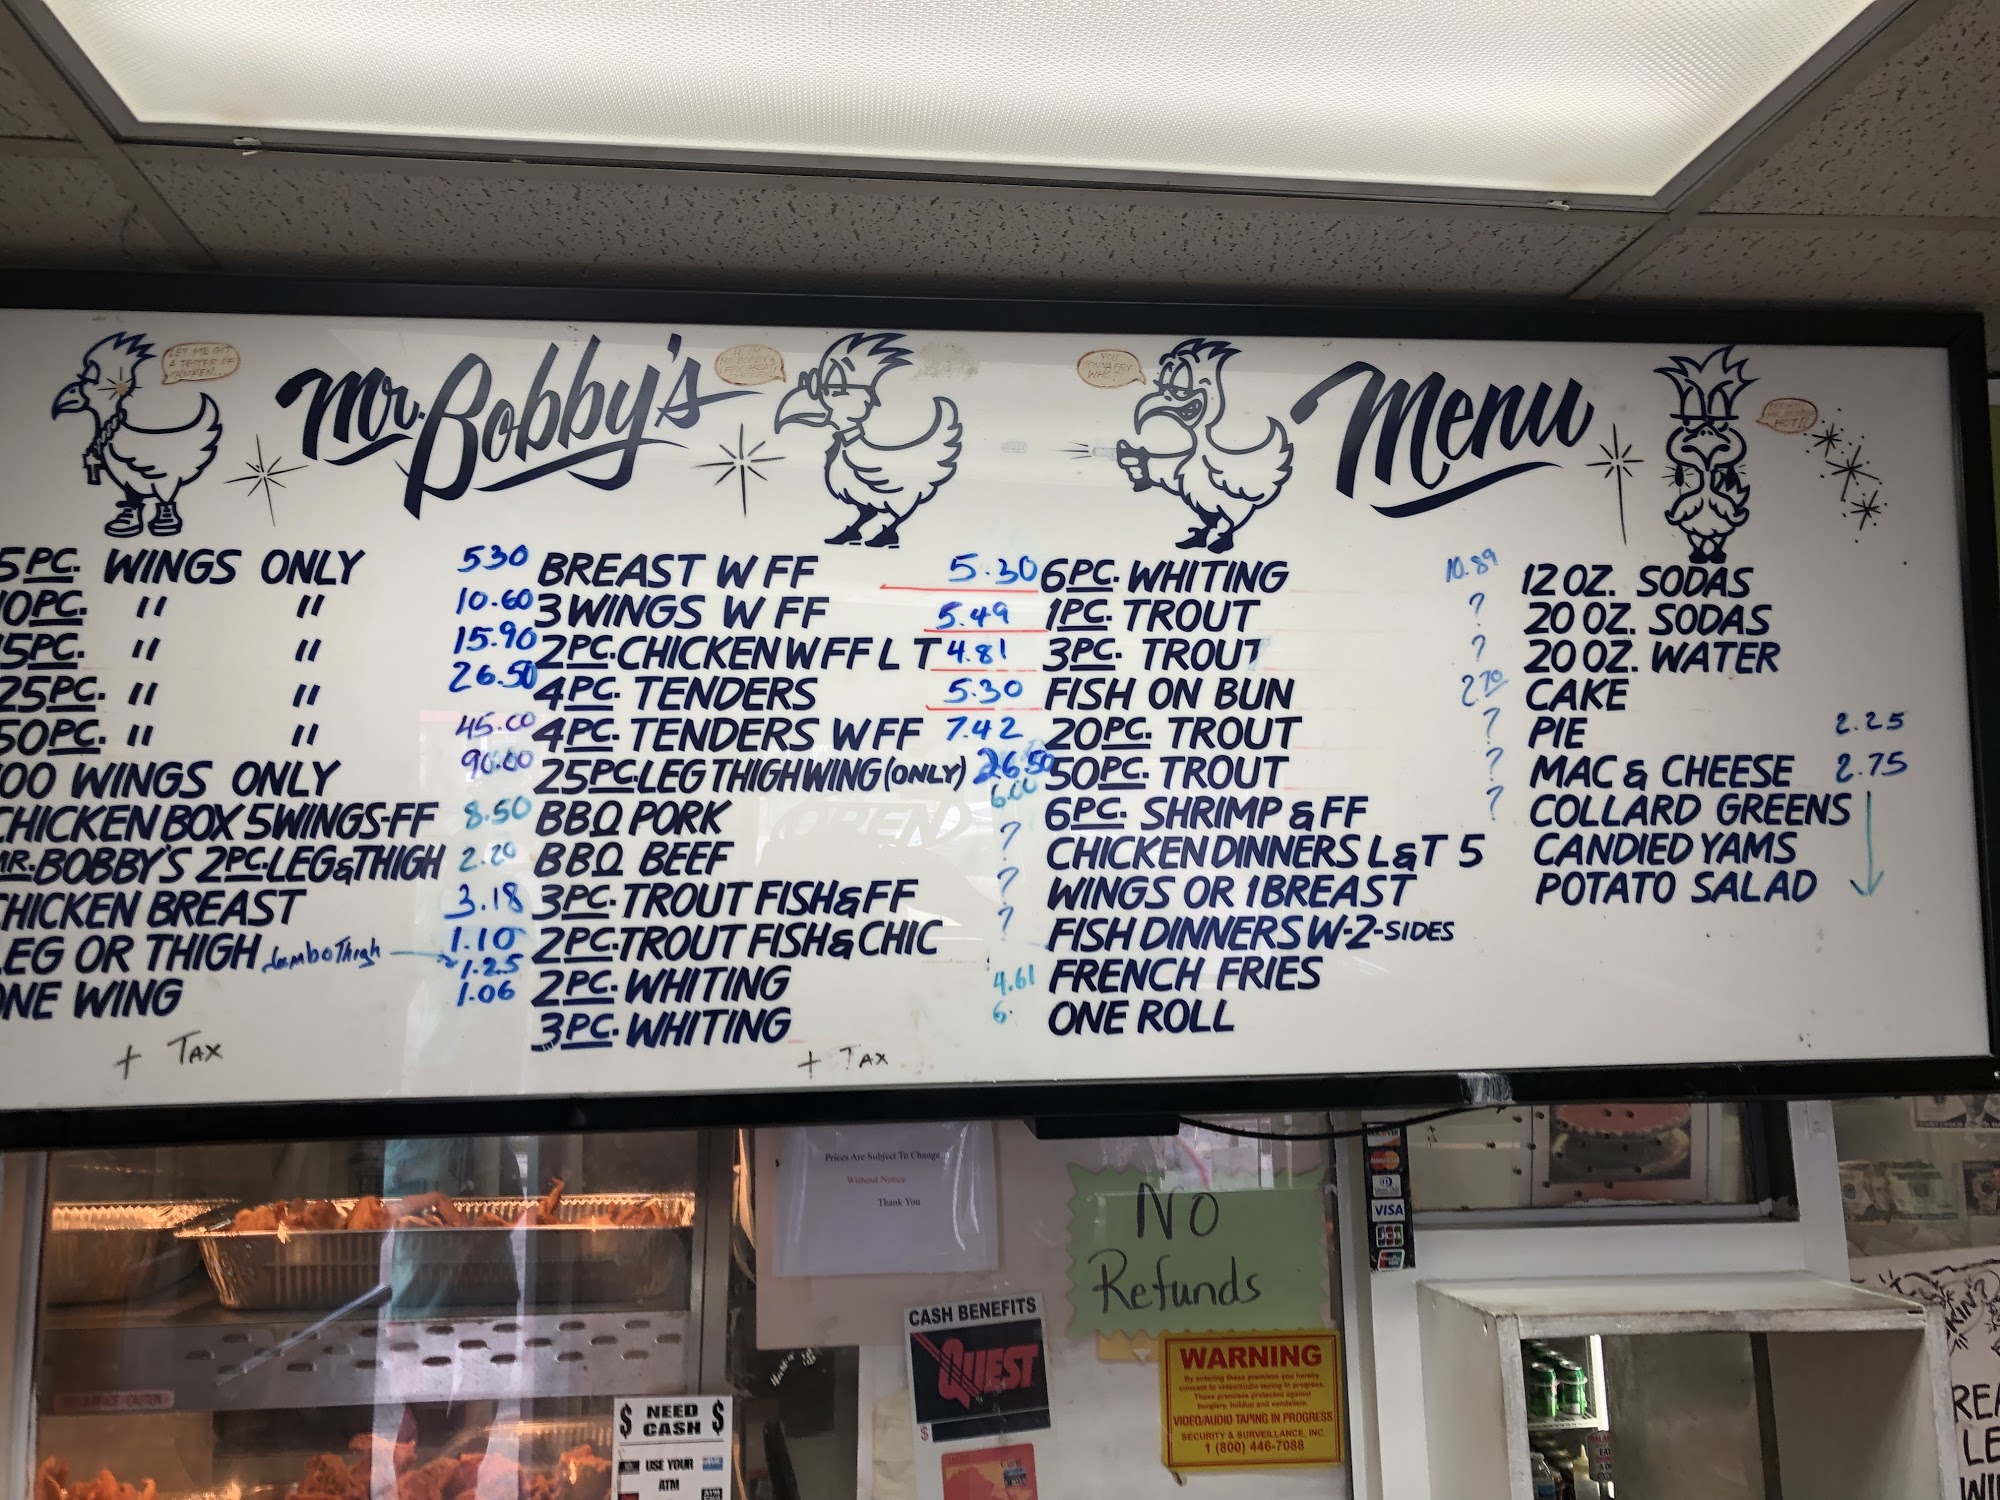 LET ME GET
A TESTER OF
CHICKEN...
Mr. Bobby's
YOU
GONNA FRY
WHO?!
Menu
5PC. WINGS ONLY 530
10PC. " " 10.60
5PC. " " 15.90
25PC. " " 26.50
50PC. " " 45.00
00 WINGS ONLY 90.00
CHICKEN BOX 5WINGS-FF 8.50
MR. BOBBY'S 2PC. LEG&THIGH 2.20
CHICKEN BREAST 3.18
LEG OR THIGH 1.10
JumboThigh 1.25
ONE WING 1.06
+ TAX
BREAST W FF 5.30
3 WINGS W FF 5.49
2PC. CHICKEN W FF L T 4.81
4PC. TENDERS 5.30
4PC. TENDERS W FF 7.42
25PC. LEG THIGH WING (ONLY) 26.50
BBQ PORK 6.00
BBQ BEEF ?
3PC. TROUT FISH & FF ?
2PC. TROUT FISH & CHIC ?
2PC. WHITING 4.61
3PC. WHITING 6.
+ TAX
6PC. WHITING 10.89
1PC. TROUT ?
3PC. TROUT ?
FISH ON BUN 2.70
20PC. TROUT ?
50PC. TROUT ?
6PC. SHRIMP & FF ?
CHICKEN DINNERS L&T 5
WINGS OR 1 BREAST
FISH DINNERS W-2-SIDES
FRENCH FRIES
ONE ROLL
12 OZ. SODAS
20 OZ. SODAS
20 OZ. WATER
CAKE
PIE 2.25
MAC & CHEESE 2.75
COLLARD GREENS
CANDIED YAMS
POTATO SALAD
Prices Are Subject To Change
Without Notice
Thank You
NO
Refunds
CASH BENEFITS
QUEST
WARNING
By entering these premises you hereby
consent to video/audio taping in progress.
These premises protected against
burglary, holdup and vandalism.
VIDEO/AUDIO TAPING IN PROGRESS
SECURITY & SURVEILLANCE, INC.
1 (800) 446-7088
$ NEED $
CASH
USE YOUR
ATM
VISA
JCB